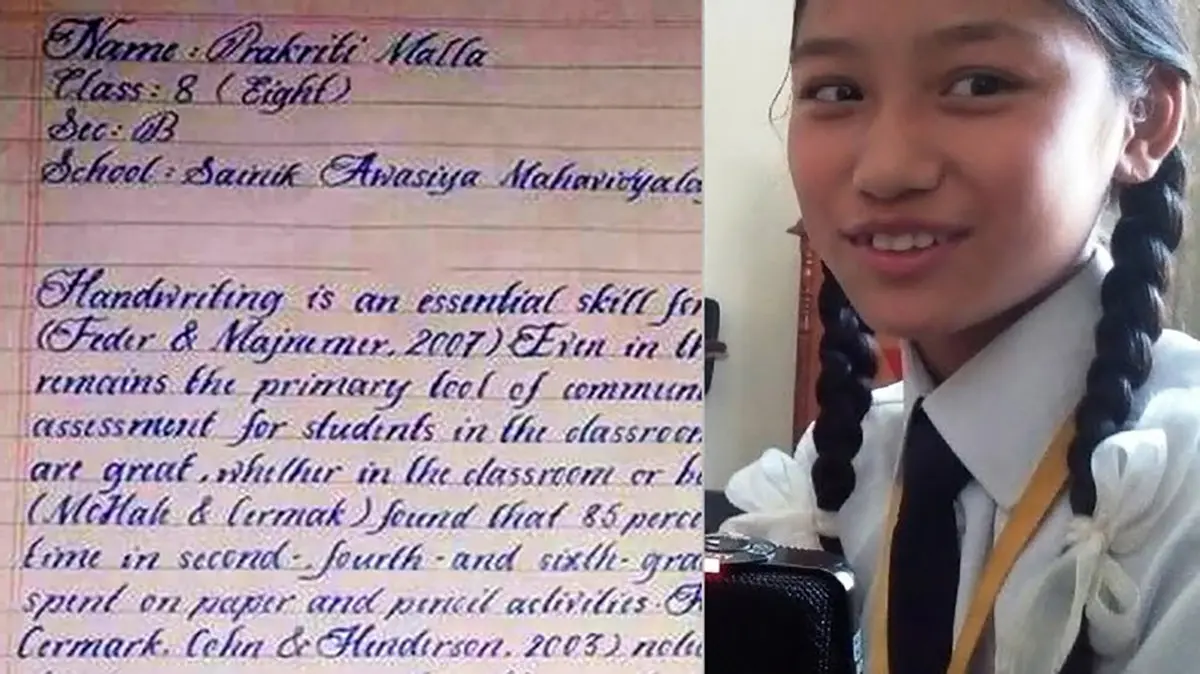 Name : Prakriti Malla
Class : 8 ( Eight )
Sec : B
School : Sainik Awasiya
Handwriting is an essential skill for
(Feder & Majnemer, 2007) Even in
remains the primary tool of
assessment for students in the
are great, whether in the classroom or
(McHale & Cermak) found that 85
time in second-, fourth-and sixth-
spent on paper and pencil activities.
Cermark, Cohn & Henderson, 2003)